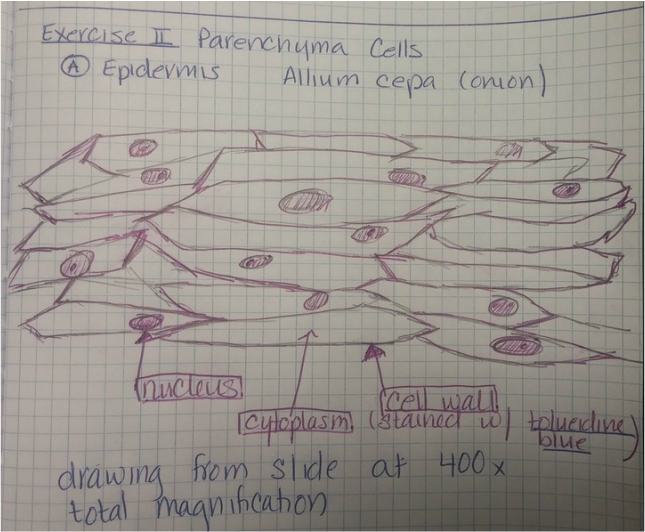 Exercise II Parenchyma Cells
A Epidermis Allium cepa (onion)
nucleus
cytoplasm
cell wall
(stained w/ toluedine
blue)
drawing from slide at 400x
total magnification